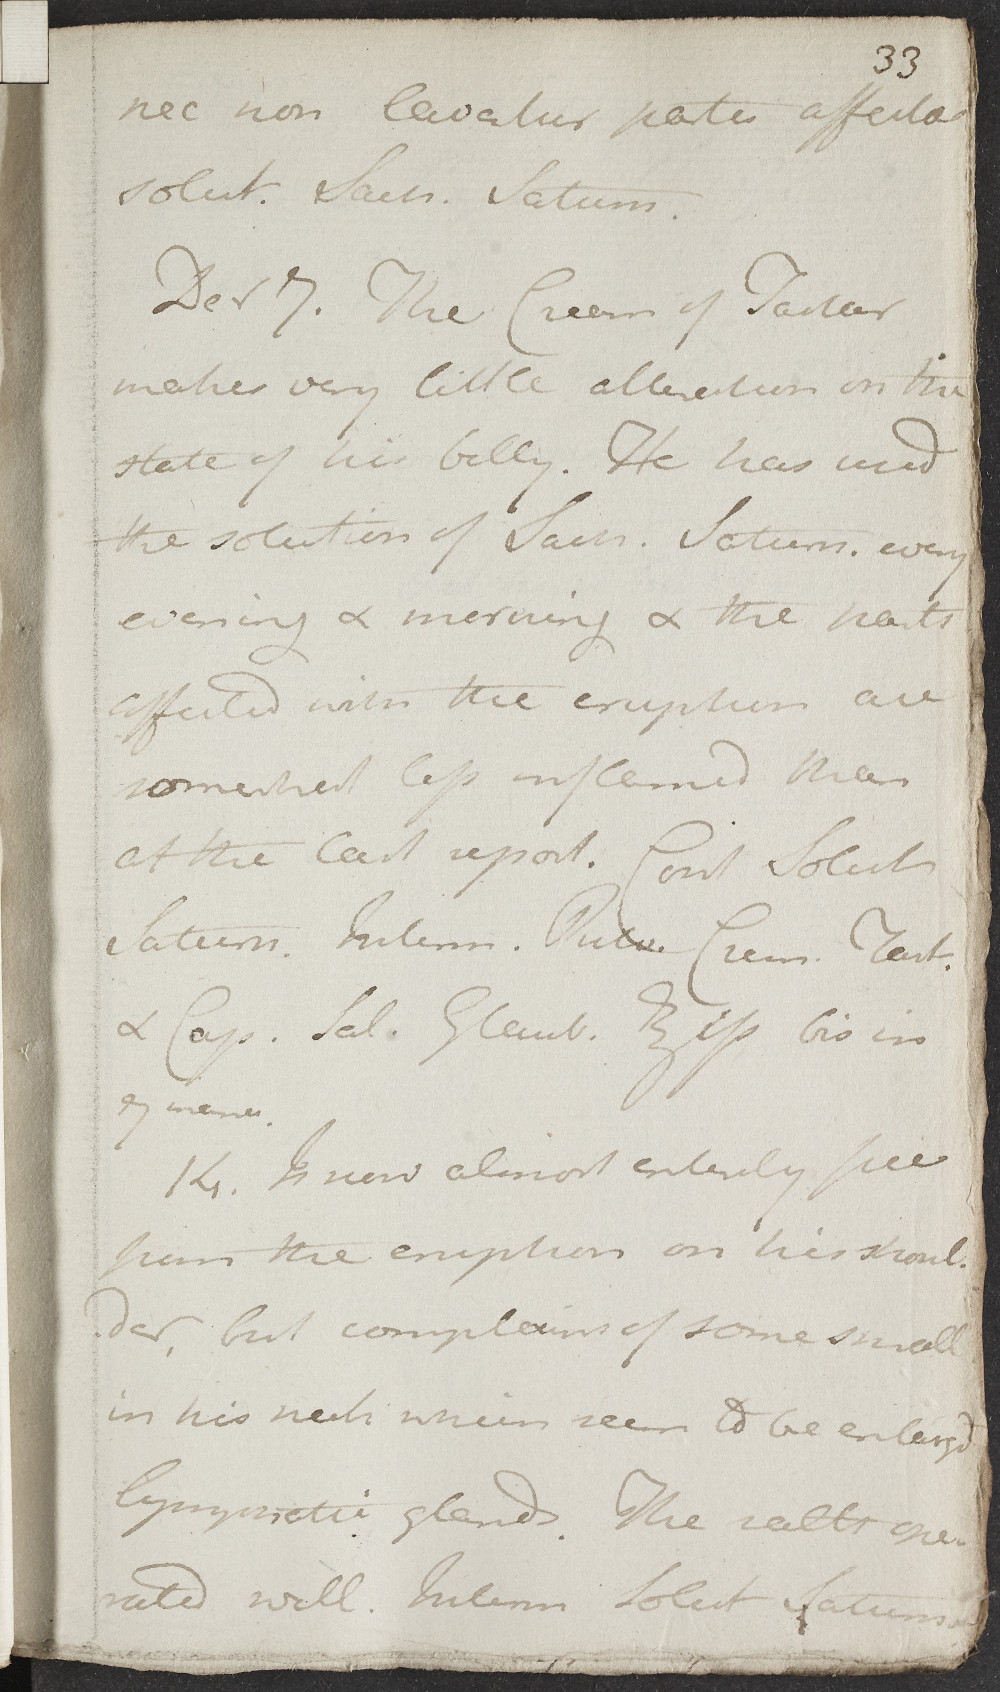 33
nec non lavatur partes affectas
solut. Sach. Saturn.
Decr 7. The Cream of Tartar
makes very little alteration on the
state of his belly. He has used
the solution of Sach. Saturn. every
evening & morning & the parts
affected with the eruption are
somewhat less inflamed than
at the last report. Cont Solut
Saturn. Interm. Pulv. Crem. Tart.
& Cap. Sal. Glaub. ℥iss bis in
manes.
14. Is now almost entirely free
from the eruption on his shoul-
der, but complains of some small
in his neck which seem to be enlarg'd
lymphatic glands. The salts ope-
rated well. Interm Solut Saturn